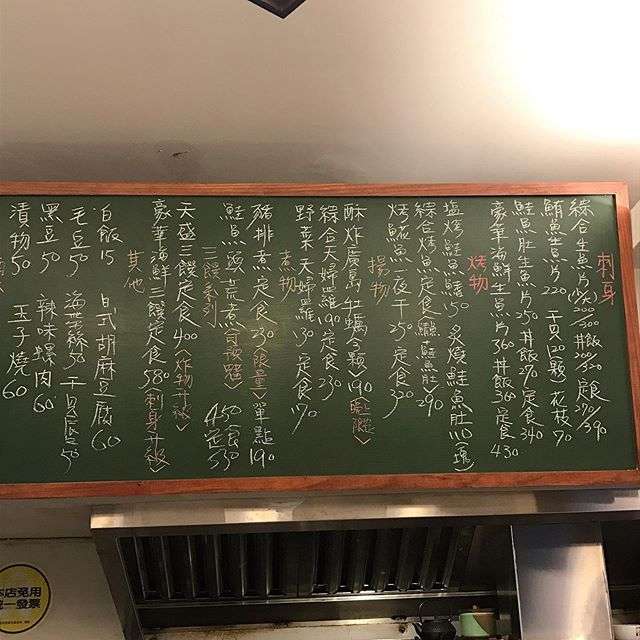 刺身
綜合生魚片(小/大)200/300 丼飯200/320 定食270/390
鮪魚生魚片220 干貝120(2顆) 花枝70
鮭魚肚生魚片250 丼飯270 定食340
豪華海鮮生魚片360 丼飯360 定食430
烤物
塩烤鮭魚鰭150 炙燒鮭魚肚110
綜合烤魚定食 鮭魚肚 290
烤魚一夜干250 定食320
揚物
酥炸廣島牡蠣(5顆)190
綜合天婦羅190 定食230
野菜天婦羅130 定食170
煮物
豬排煮定食230(限量)單點190
鮭魚頭荒煮 450 定食530
三饌系列
天盛三饌定食400(炸物丼飯)
豪華海鮮三饌定食580(刺身丼飯)
其他
白飯15 日式胡麻豆腐60
毛豆50 海藻絲50 干貝唇50
黑豆50 辣味螺肉60
漬物50 玉子燒60
本店免用
統一發票